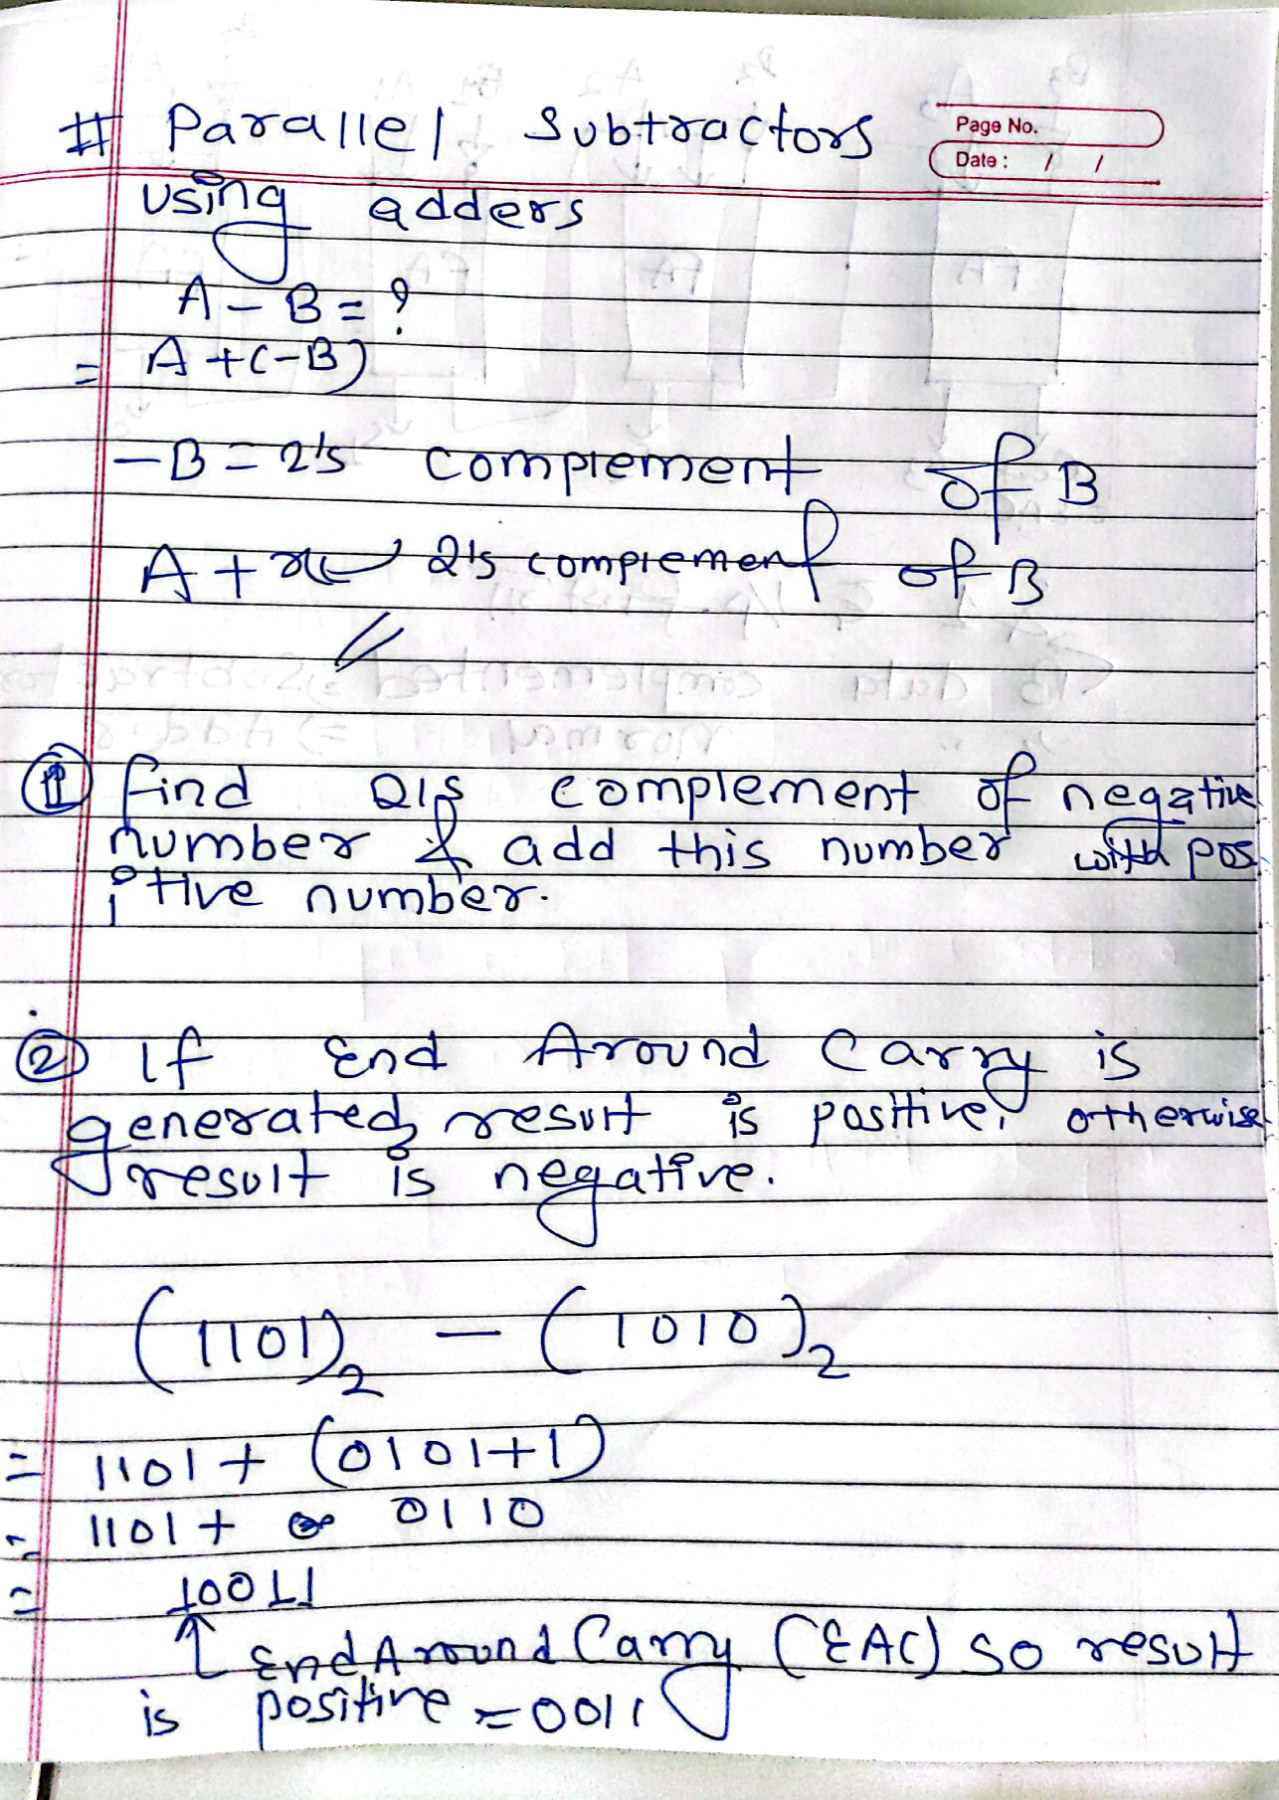 # Parallel Subtractors
Page No.
Date : / /
using adders
A - B = ?
= A + (-B)
-B = 2's complement of B
A + 2's complement of B
① find 2's complement of negative
number & add this number with pos
itive number.
② If End Around Carry is
generated, result is positive, otherwise
result is negative.
(1101)₂ - (1010)₂
= 1101 + (0101+1)
= 1101 + 0110
= 10011
↑ End Around Carry (EAC) so result
is positive = 0011